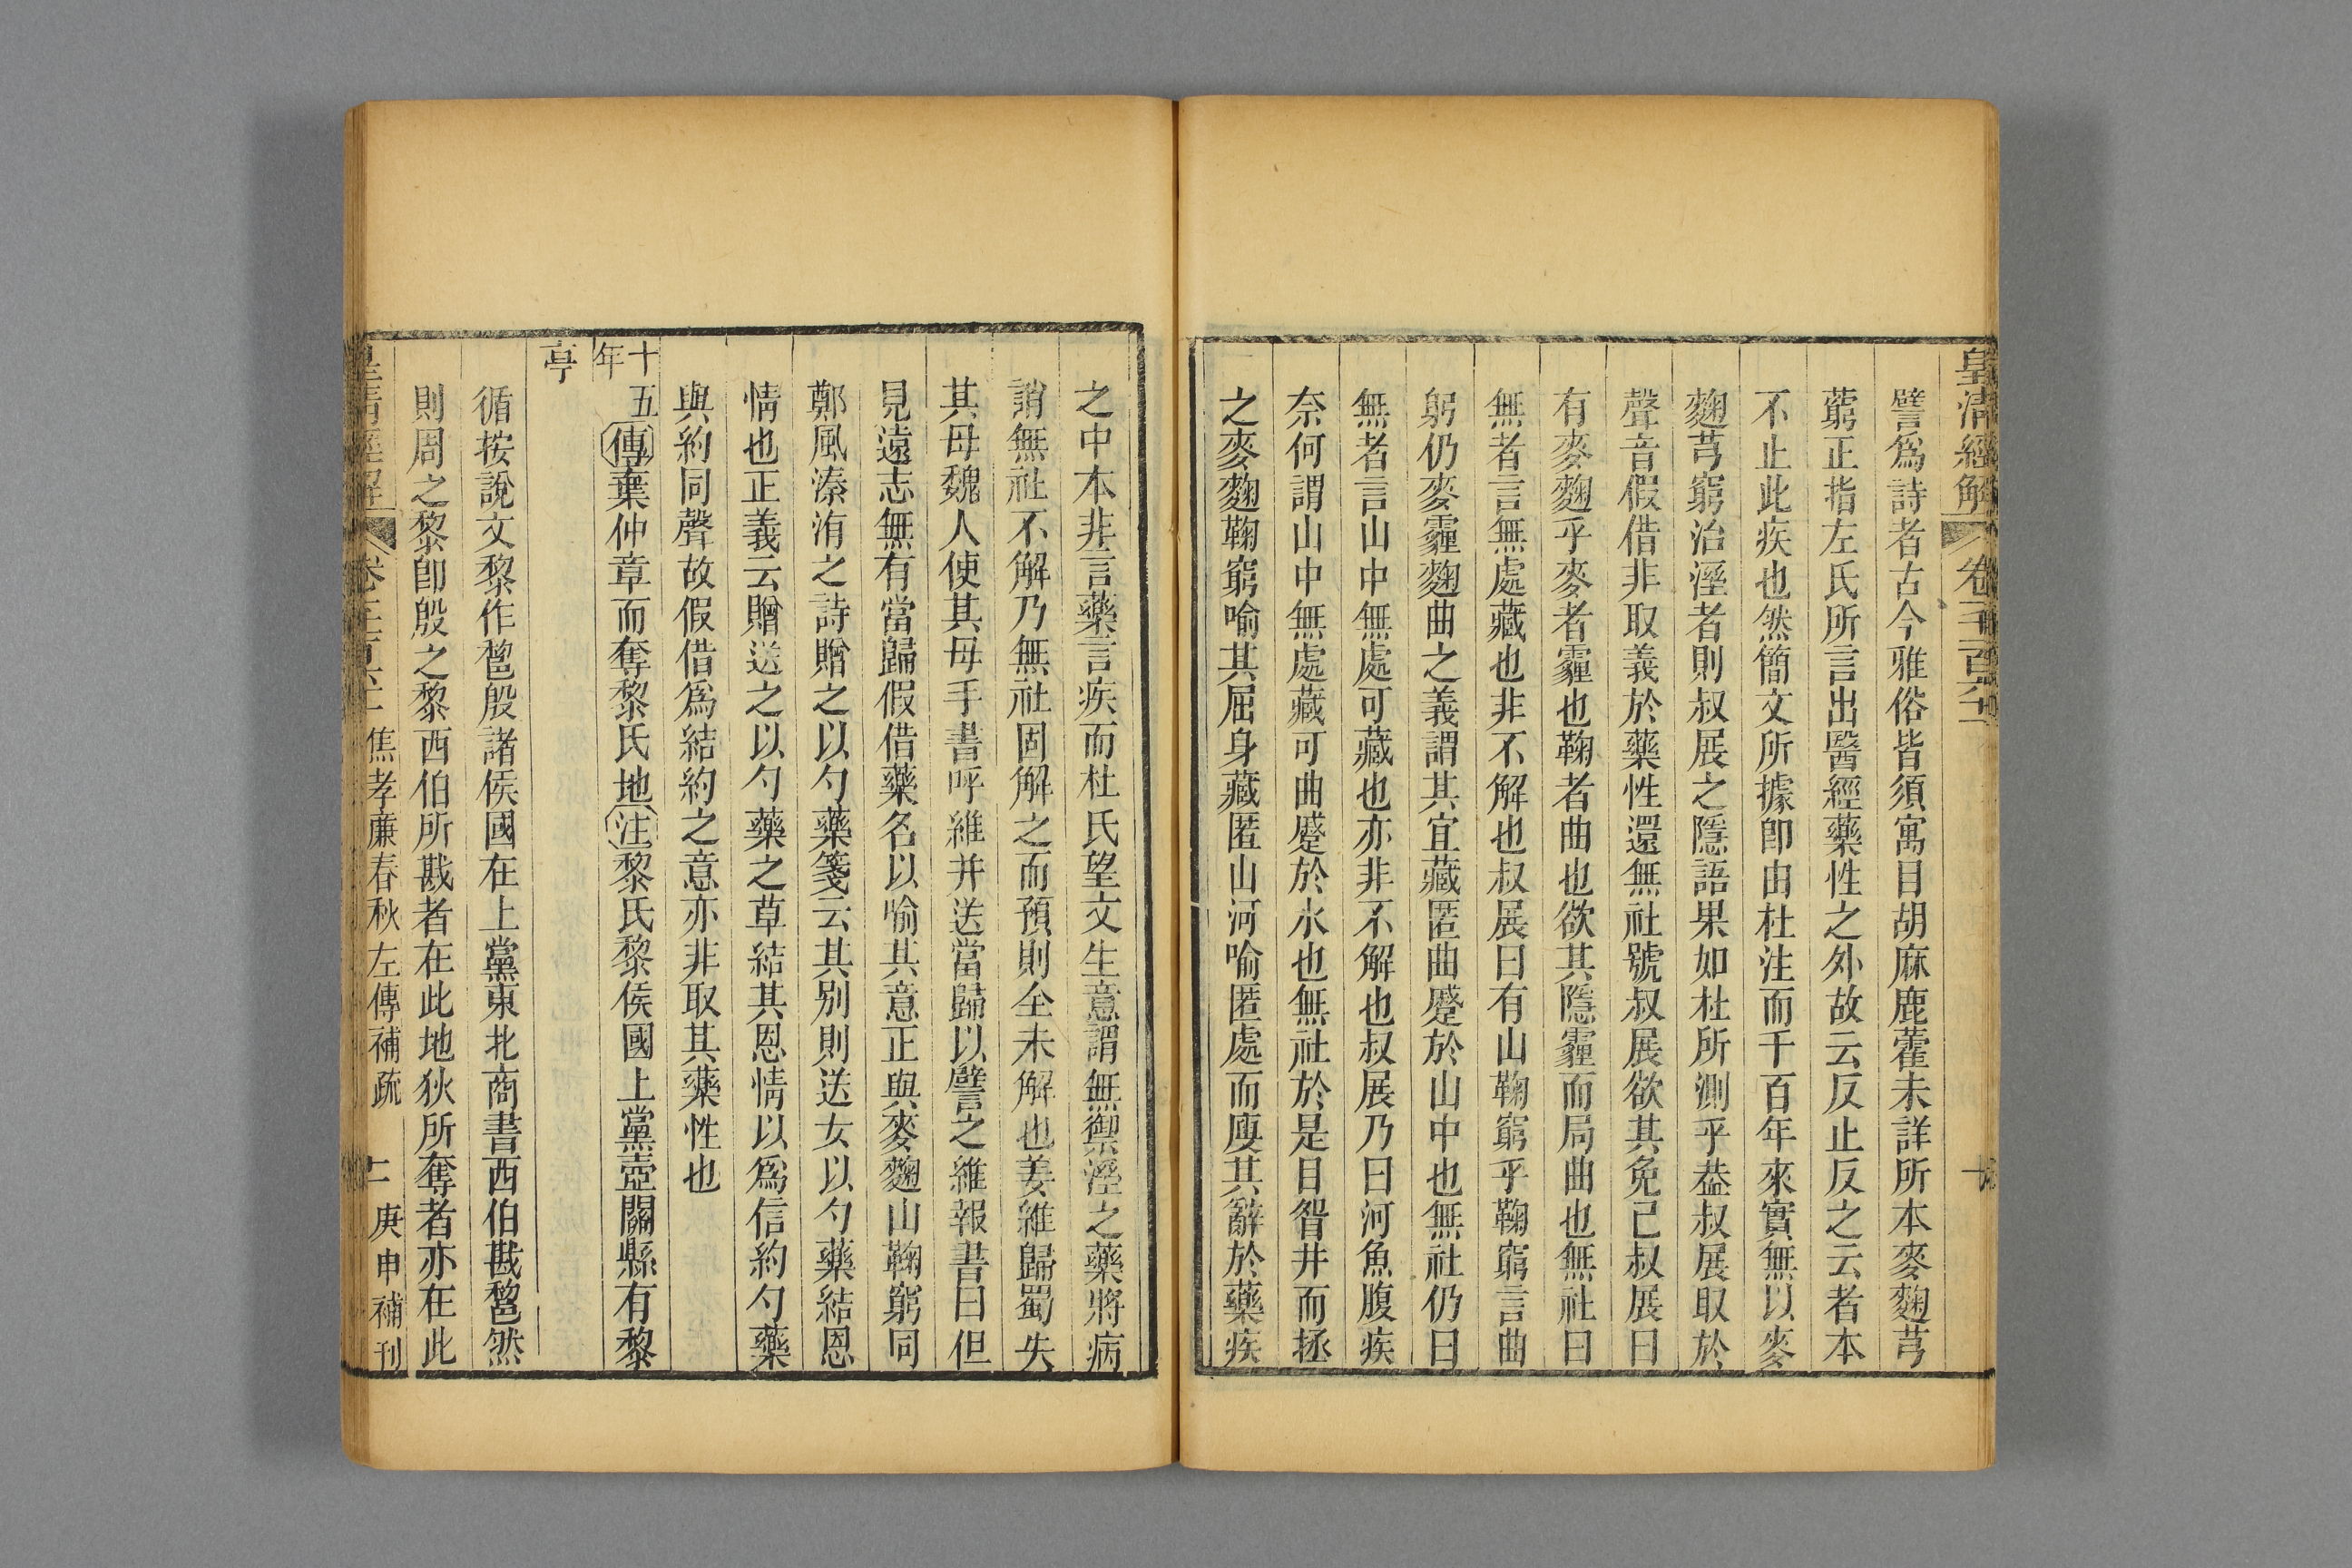 皇清經解 卷一千百六十一
譬爲詩者古今雅俗皆須寓目胡麻鹿藿未詳所本麥麴芎
藭正指左氏所言出醫經藥性之外故云反止反之云者本
不止此疾也然簡文所據卽由杜注而千百年來實無以麥
麴芎窮治溼者則叔展之隱語果如杜所測乎葢叔展取於
聲音假借非取義於藥性還無社號叔展欲其免己叔展曰
有麥麴乎麥者霾也鞠者曲也欲其隱霾而局曲也無社曰
無者言無處藏也非不解也叔展曰有山鞠窮乎鞠窮言曲
躬仍麥霾麴曲之義謂其宜藏匿曲蹙於山中也無社仍曰
無者言山中無處可藏也亦非不解也叔展乃曰河魚腹疾
奈何謂山中無處藏可曲蹙於水也無社於是目眢井而拯
之麥麴鞠窮喻其屈身藏匿山河喻匿處而廋其辭於藥疾
之中本非言藥言疾而杜氏望文生意謂無禦溼之藥將病
謂無社不解乃無社固解之而預則全未解也姜維歸蜀失
其母魏人使其母手書呼維并送當歸以譬之維報書曰但
見遠志無有當歸假借藥名以喻其意正與麥麴山鞠窮同
鄭風溱洧之詩贈之以勺藥箋云其别則送女以勺藥結恩
情也正義云贈送之以勺藥之草結其恩情以爲信約勺藥
與約同聲故假借爲結約之意亦非取其藥性也
十五年傳棄仲章而奪黎氏地注黎氏黎侯國上黨壺關縣有黎
亭
循按說文黎作𨛫殷諸侯國在上黨東北商書西伯戡𨛫然
則周之黎卽殷之黎西伯所戡者在此地狄所奪者亦在此
皇清經解 焦孝廉春秋左傳補疏 庚申補刊